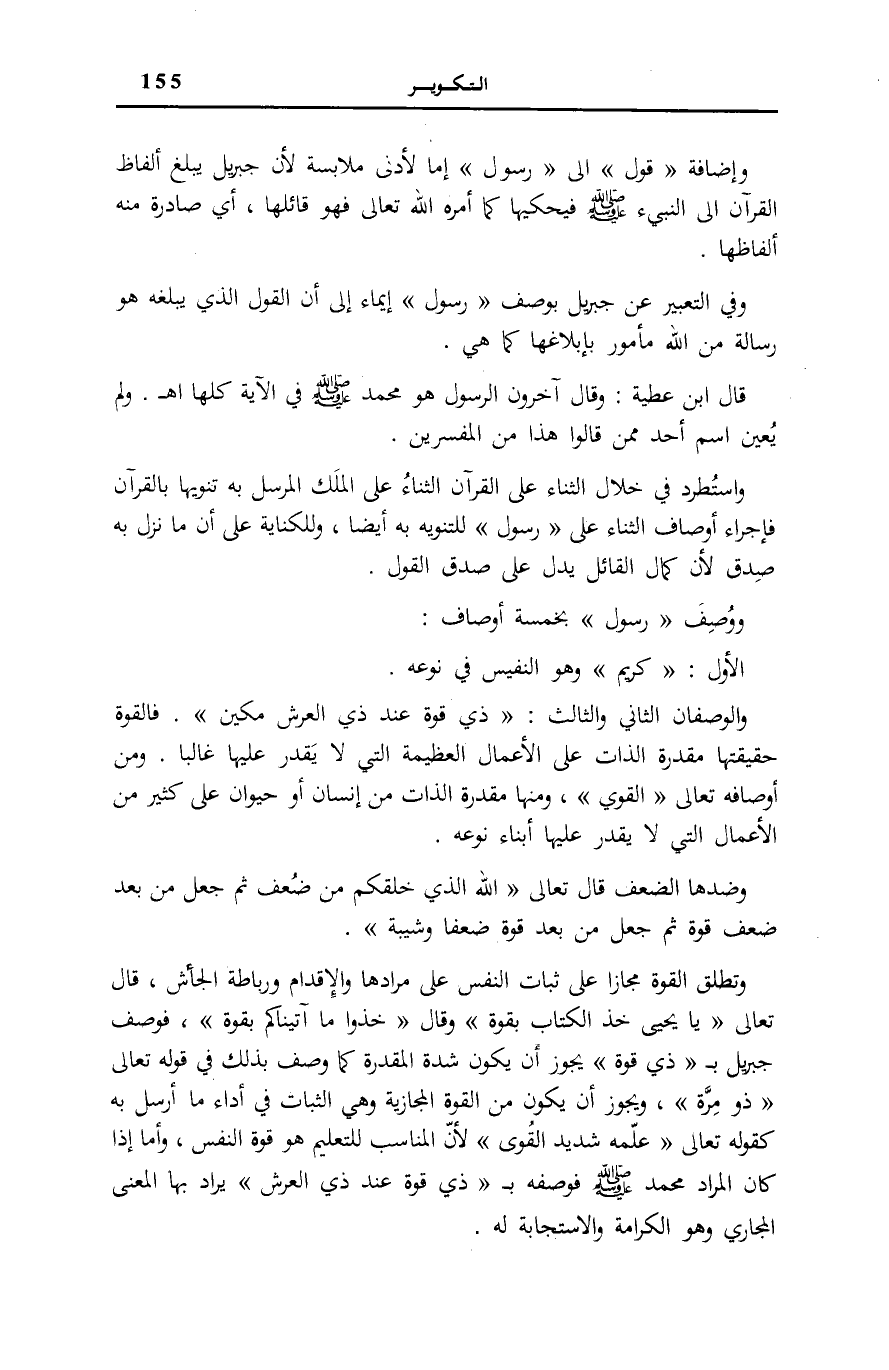 التكويـر 155
وإضافة « قول » الى « رسول » إما لأدنى ملابسة لأن جبريل يبلغ ألفاظ
القرآن الى النبيء ﷺ فيحكيها كما أمره الله تعالى فهو قائلها ، أي صادرة منه
ألفاظها .
وفي التعبير عن جبريل بوصف « رسول » إيماء إلى أن القول الذي يبلغه هو
رسالة من الله مأمور بإبلاغها كما هي .
قال ابن عطية : وقال آخرون الرسول هو محمد ﷺ في الآية كلها اهـ . ولم
يُعين اسم أحد ممن قالوا هذا من المفسرين .
واستُطرد في خلال الثناء على القرآن الثناءُ على الملَك المرسل به تنويها بالقرآن
فإجراء أوصاف الثناء على « رسول » للتنويه به أيضا ، وللكناية على أن ما نزل به
صِدق لأن كمال القائل يدل على صدق القول .
ووُصِفَ « رسول » بخمسة أوصاف :
الأول : « كريم » وهو النفيس في نوعه .
والوصفان الثاني والثالث : « ذي قوة عند ذي العرش مكين » . فالقوة
حقيقتها مقدرة الذات على الأعمال العظيمة التي لا يَقدر عليها غالبا . ومن
أوصافه تعالى « القوي » ، ومنها مقدرة الذات من إنسان أو حيوان على كثير من
الأعمال التي لا يقدر عليها أبناء نوعه .
وضدها الضعف قال تعالى « الله الذي خلقكم من ضُعف ثم جعل من بعد
ضعف قوة ثم جعل من بعد قوة ضعفا وشيبة » .
وتطلق القوة مجازا على ثبات النفس على مرادها والإِقدام ورباطة الجأش ، قال
تعالى « يا يحيى خذ الكتاب بقوة » وقال « خذوا ما آتيناكم بقوة » ، فوصف
جبريل بـ « ذي قوة » يجوز أن يكون شدة المقدرة كما وصف بذلك في قوله تعالى
« ذو مِرَّة » ، ويجوز أن يكون من القوة المجازية وهي الثبات في أداء ما أرسل به
كقوله تعالى « علّمه شديد القُوى » لأنّ المناسب للتعليم هو قوة النفس ، وأما إذا
كان المراد محمد ﷺ فوصفه بـ « ذي قوة عند ذي العرش » يراد بها المعنى
المجاري وهو الكرامة والاستجابة له .